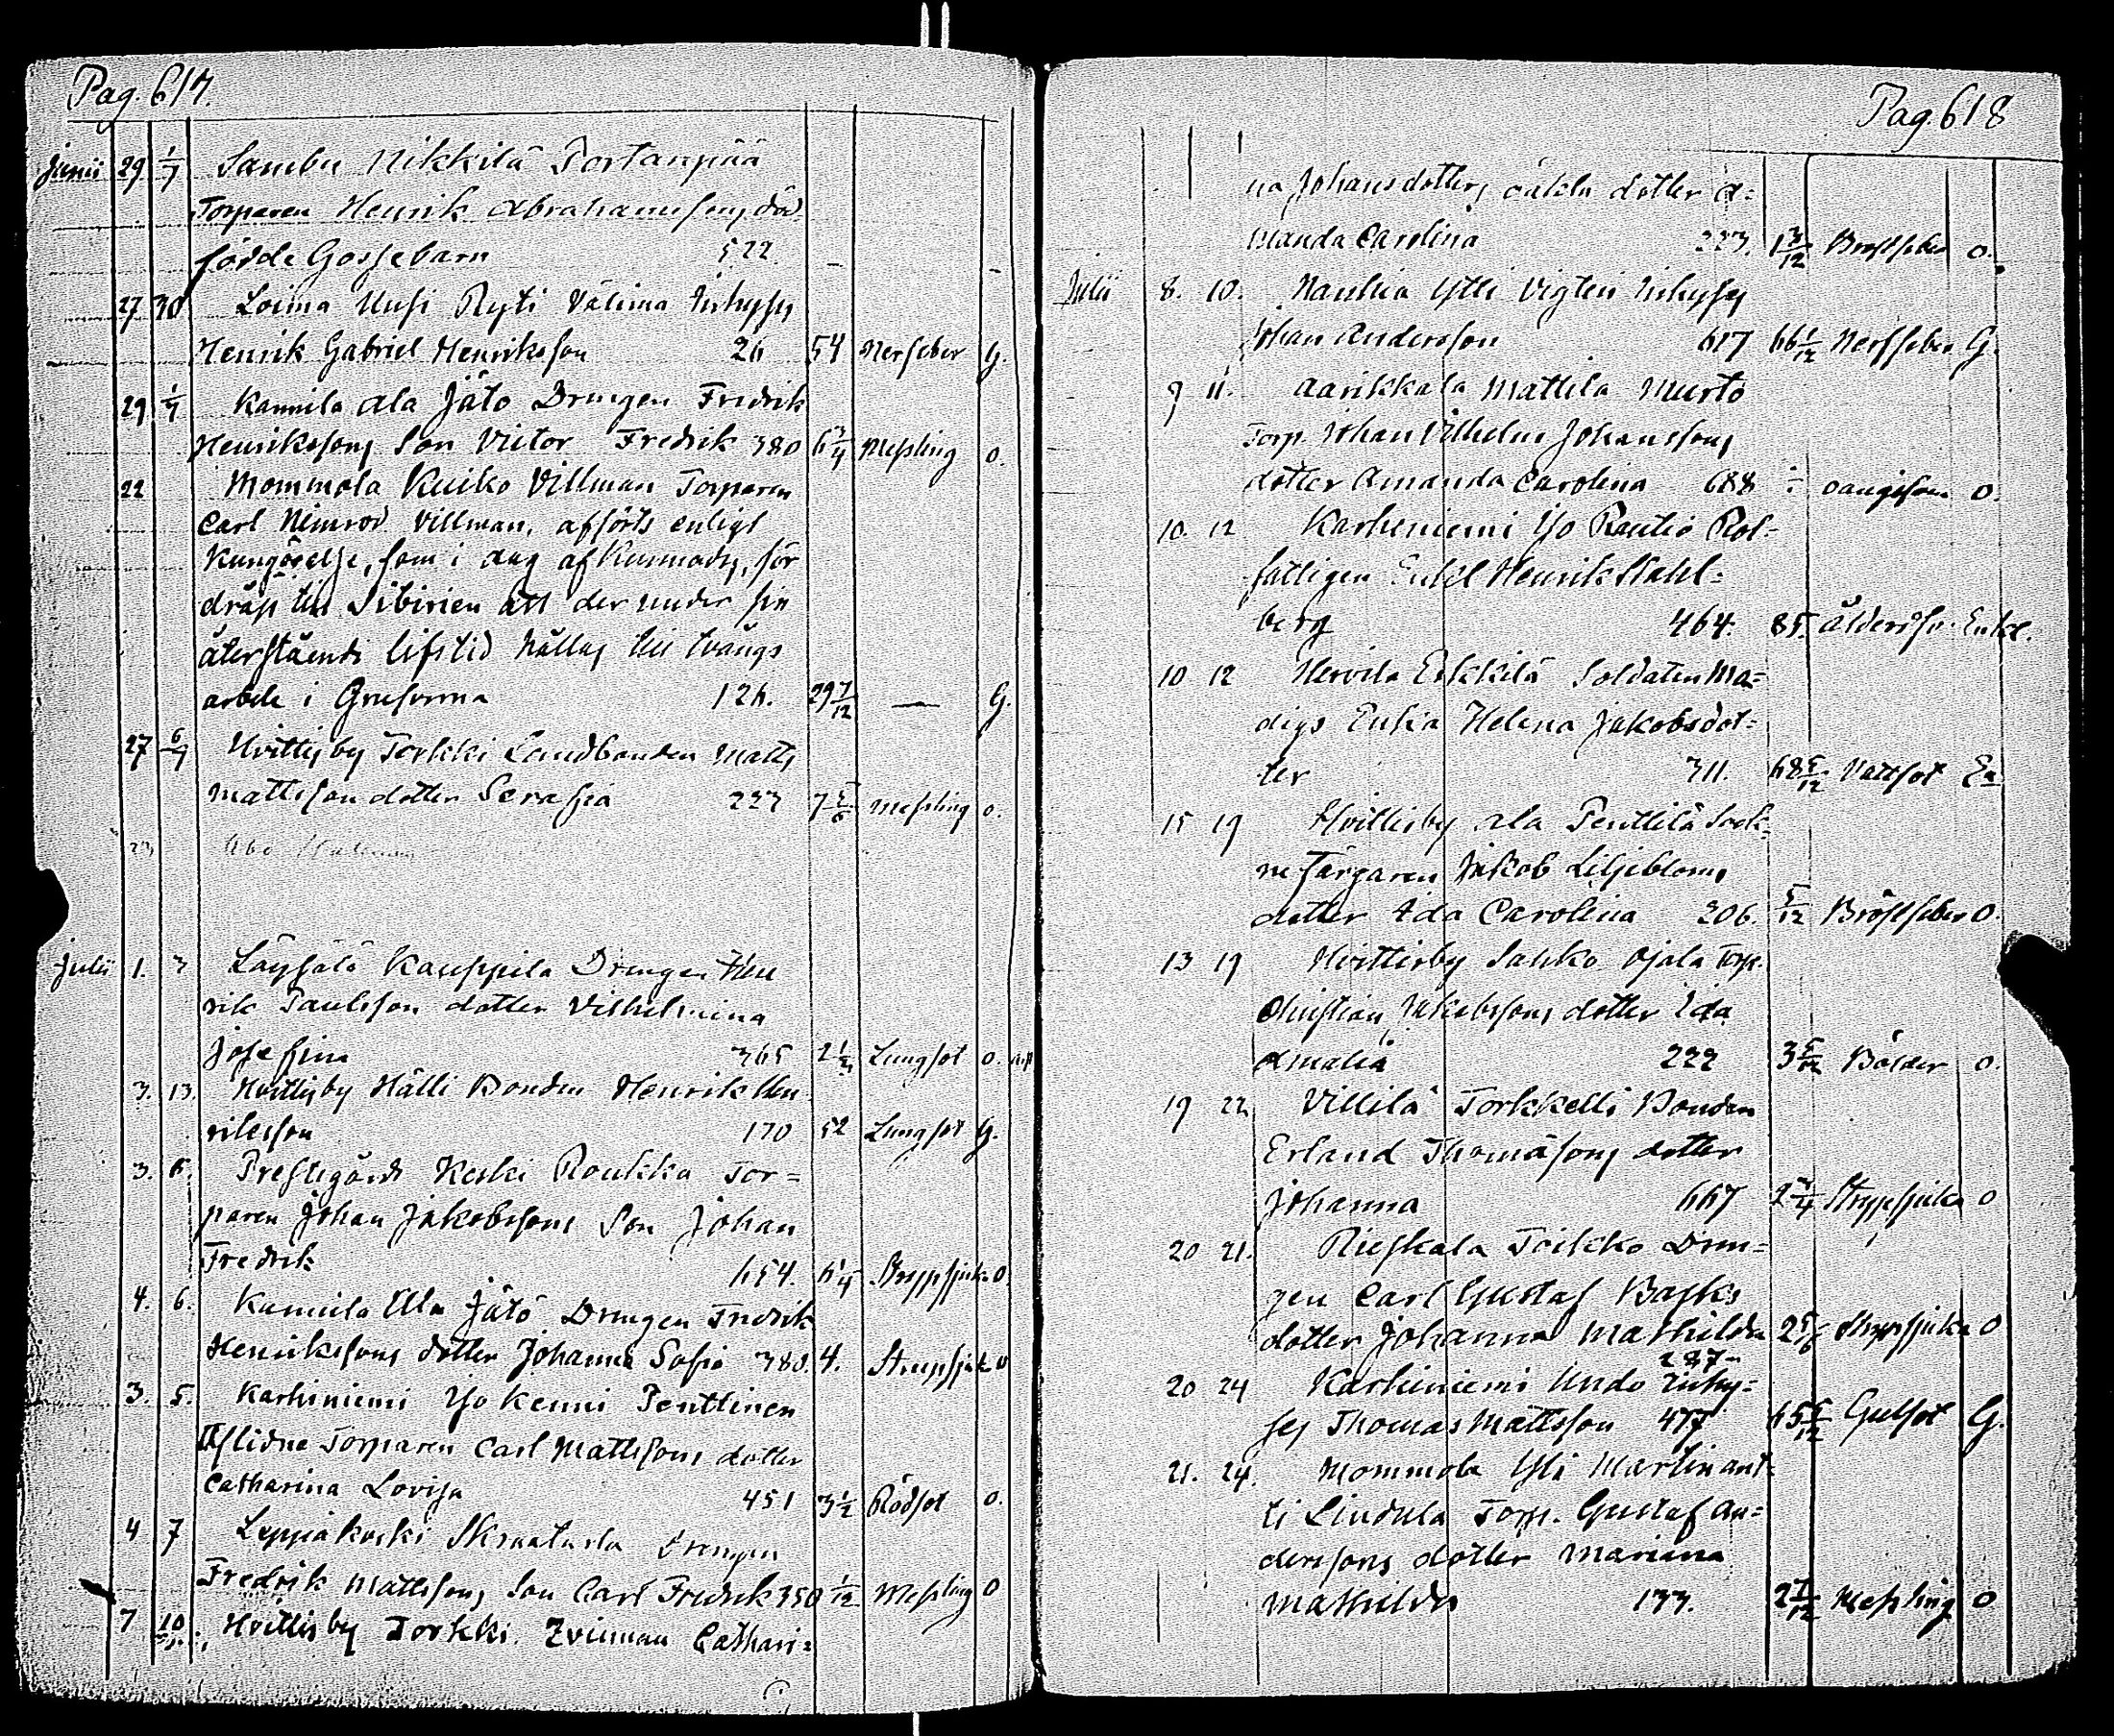 Pag. 617.
Junii 29 1/7 Sambu Nikkilä Portanpää
Torparen Henrik Abrahamssons död-
födde Gossebarn 522. — —
27 30 Loima Uusi Ryti Välima Inhyses
Henrik Gabriel Henriksson 26 54 Nerfeber G.
29 1/7 Kannila Ala Jäto Drengen Fredrik
Henrikssons Son Victor Fredrik 380 6 3/4 Messling o.
22 Mommola Kuiko Villman Torparen
Carl Nimrod Villman, afförts enligt
Kungörelse, som i dag afkunnades, för
dråp till Sibirien att der under sin
återstående lifstid hållas till tvångs
arbete i Grufvorna 126. 29 7/12 — G.
27 6/7 Hvittisby Torkki Landbonden Matts
Mattsson dotter Serafia 223 7 5/6 Messling o.
23 Åbo
Julii 1. 3 Läysälä Kauppila Drengen Hen
rik Paulsson dotter Vilhelmina
Josefina 365 2 1/3 Lungsot o.
3. 13. Hvittisby Hälli Bonden Henrik Hen
riksson 170 52 Lungsot G.
3. 6. Prestegårds Keski Roukka Tor=
paren Johan Jakobssons Son Johan
Fredrik 654. 6 1/4 Strypsjuka o.
4. 6. Kannila Ala Jätö Drengen Fredrik
Henrikssons dotter Johanna Sofia 380. 4. Strypsjuk o
3. 5. Karhiniemi Yjo Kenni Penttinen
Aflidne Torparen Carl Mattssons dotter
Catharina Lovisa 451 3 1/2 Rödsot o.
4 7 Leppäkoski Skraatarla Drengen
Fredrik Mattssons Son Carl Fredrik 350 1/12 Messling o
7 10 Hvittisby Torkki Qvinnan Cathari=
Pag. 618
na Johansdotters oäkta dotter A=
manda Carolina 223. 1 3/12 Bröstfeber o.
Julii 8. 10. Nanhia Ylli Vigteri Inhyses
Johan Andersson 617 66 1/12 Nerffeber G.
9 11. Aarikkala Mattila Murto
Torp. Johan Vilhelm Johanssons
dotter Amanda Carolina 688 oangifven o.
10. 12 Karheniemi Yjo Rautio Rot-
fattigen Enkl Henrik Stahl=
berg 464. 85. Åldersv. Enkl.
10 12 Hervila Erkkilä Soldaten Ma=
digs Enka Helena Jakobsdot=
ter 311. 68 5/12 Vattsot En
15 19 Hvittisby Ala Penttilä Sock-
nefärgaren Jakob Liljebloms
dotter Ida Carolina 206. 5/12 Bröstfeber o.
13 19 Hvittisby Sahko Ojala Torp.
Christian Jakobssons dotter Ida
Amalia 222 3 5/12 Bölder o.
19 22 Villilä Torkkelli Bonden
Erland Thomassons dotter
Johanna 667 2 3/4 Strypsjuka o
20 21. Rieskala Toikko Dren=
gen Carl Gustaf Basks
dotter Johanna Mathilda 2 5/6 Strypsjuka o
287
20 24 Karhiniemi Undo Inhy=
ses Thomas Mattsson 477 65 5/12 Gulsot G.
21. 24. Mommola Yli Martinant=
ti Lindula Torp. Gustaf An=
derssons dotter Mariana
Mathilda 133. 2 7/12 Messling o